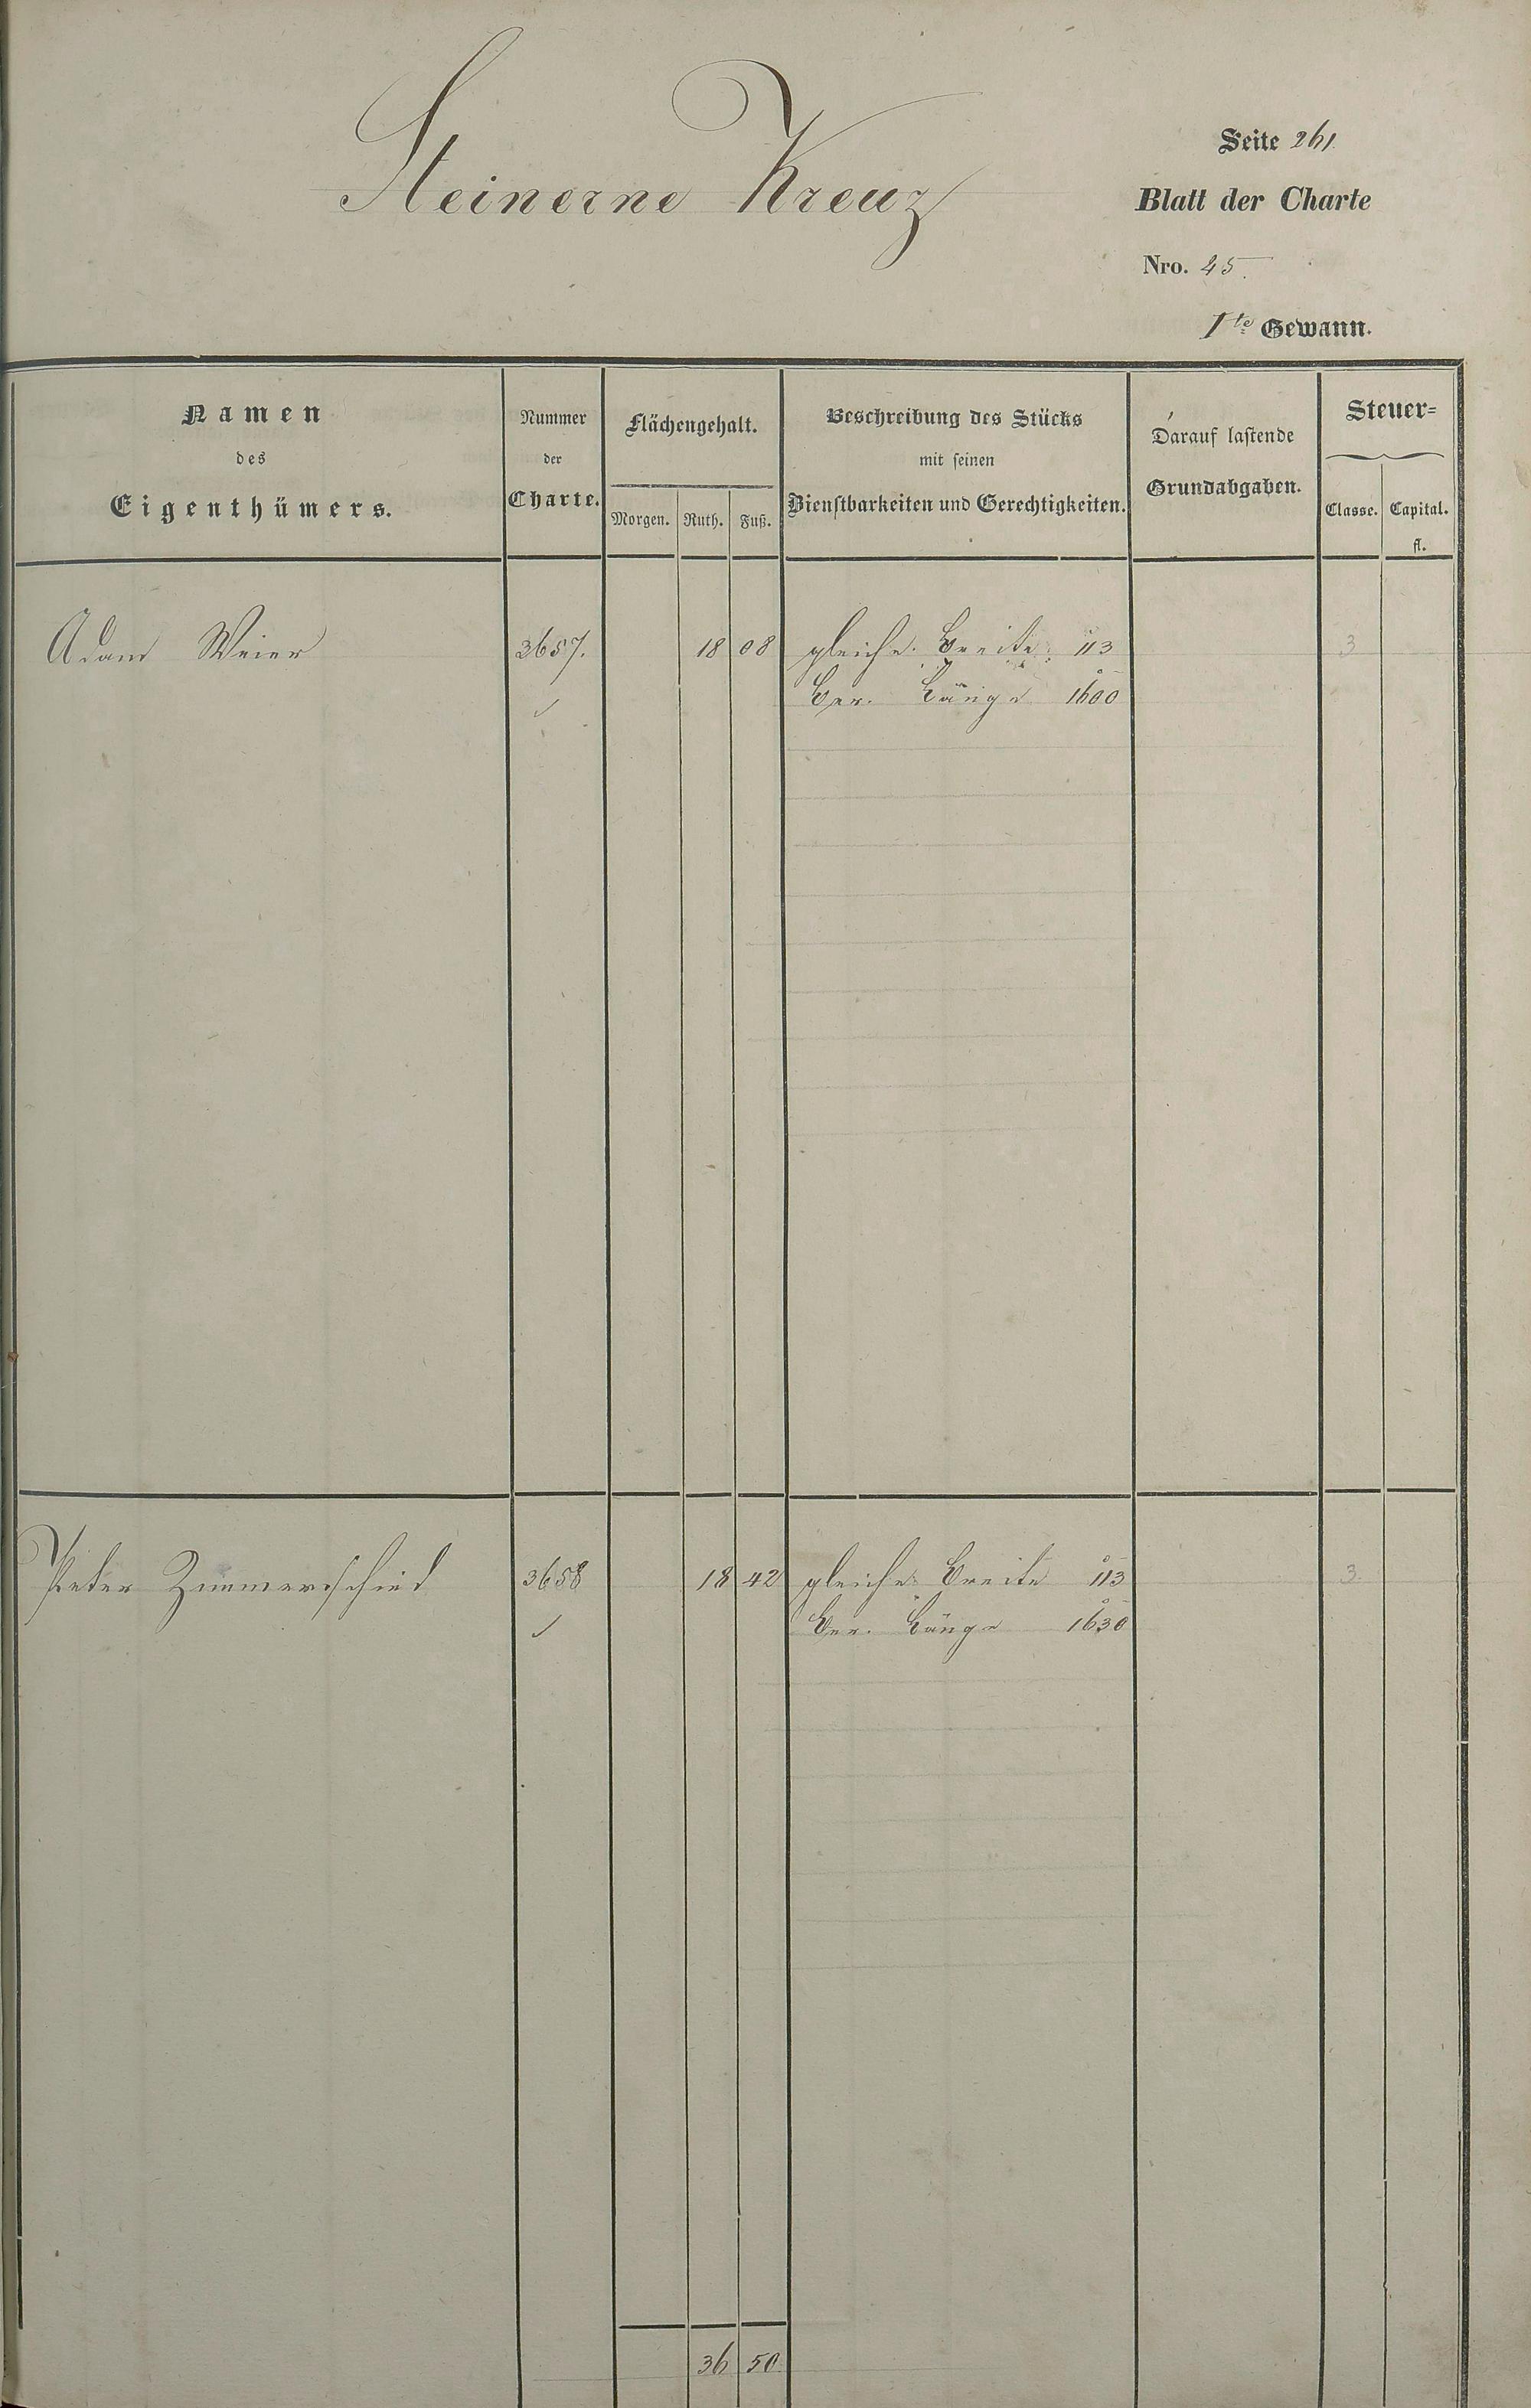 Steinerne Kreuz
Seite 261
Blatt der Charte
Nro. 25.
1te Gewann.
Namen
des
Eigenthümers.
Nummer
der
Charte.
Flächengehalt.
Morgen. Ruth. Fuß.
Beschreibung des Stücks
mit seinen
Dienstbarkeiten und Gerechtigkeiten.
Darauf lastende
Grundabgaben.
Steuer=
Classe. Capital.
fl.
Adam Weier 3657. 18 08 gleiche Breite 113 3
Ber. Länge 1600
Peter Zimmerschied 3658 18 42 gleiche Breite 113 3.
Ber. Länge 1630
36 50